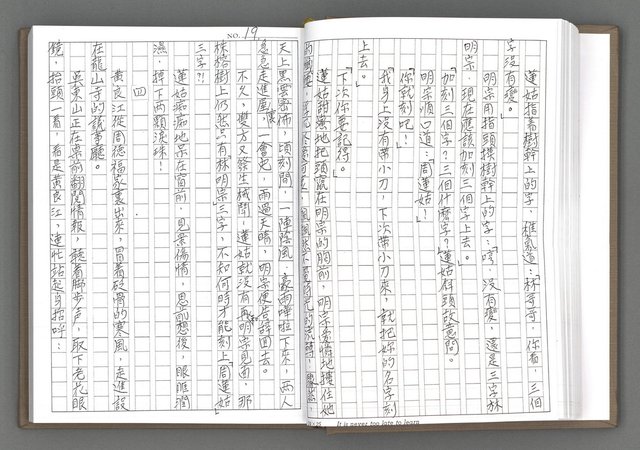 蓮姑指著樹幹上的字，稚氣道：「林哥哥，你看，三個
字沒有變。」
明宗用指頭摸樹幹上的字：「嗯，沒有變，還是三字林
明宗，現在應該加刻三個字上去。」
「加刻三個字？三個什麼字？」蓮姑斜頭故意問。
明宗順口道：「周蓮姑！」
「你就刻吧！」
「我身上沒有帶小刀，下次帶小刀來，就把妳的名字刻
上去。」
「下次你要記得。」
蓮姑甜無地把頭窩在明宗的胸前，明宗愛情地摟住她
NO. 19
天上黑雲密佈，頃刻間，一陣陰風，豪雨嘩啦下來，兩人
急急走進屋，一會兒，雨過天晴，明宗便告辭回去。
不久，雙方又發生械鬥，蓮姑就沒有再和明宗見面，那
樣榕樹上仍然只有林明宗三字，不知何時才能刻上「周蓮姑」
三字?!
蓮姑痴痴地呆在窗前，見景傷情，思前想後，眼眶潤
濕，掉下兩顆淚珠！
四
黃良江從周德福家裏出來，冒着砭骨的寒風，走進設
在龍山寺的議事廳。
吳東山正在桌前翻閱情報，聽着脚步声，取下老花眼
鏡，抬頭一看，看是黃良江，連忙站起身招呼：
It is never too late to learn